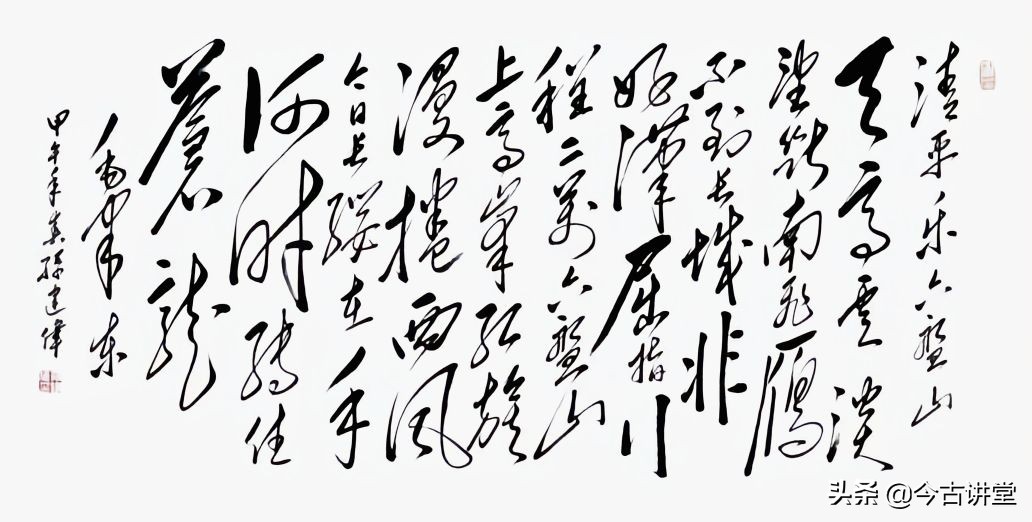 清平乐六盘山
天高雲淡
望断南飞雁
不到长城非
好漢屈指行
程二萬六盘山
上高峰红旗
漫捲西风
今日长缨在手
何时缚住
蒼龙
毛泽东
甲午年冀孫建偉
头条 @今古讲堂